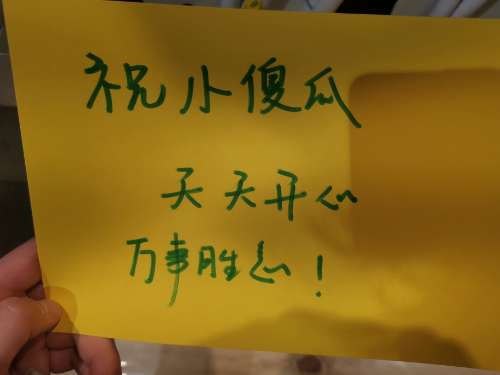 祝小傻瓜
天天开心
万事胜心！